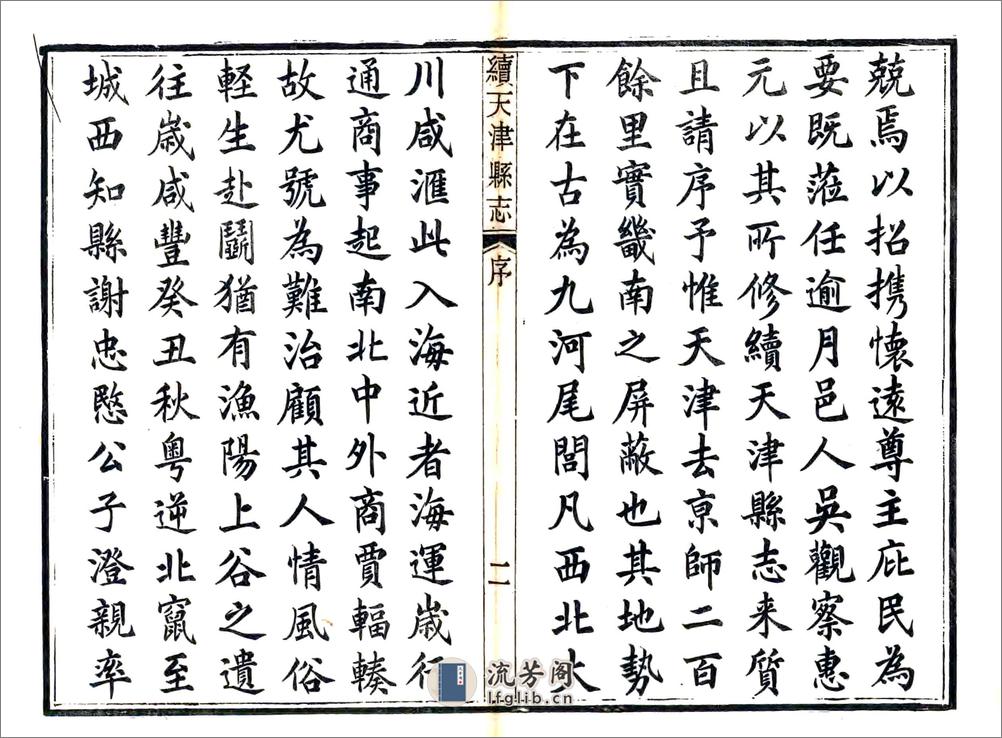 兢焉以招携懷遠尊主庇民為
要既蒞任逾月邑人吳觀察惠
元以其所修續天津縣志来質
且請序予惟天津去亰師二百
餘里實畿南之屏蔽也其地勢
下在古為九河尾閭凡西北大
續天津縣志
序
二
川咸滙此入海近者海運歲行
通商事起南北中外商賈輻輳
故尤號為難治顧其人情風俗
軽生赴鬭猶有漁陽上谷之遺
往歲咸豐癸丑秋粤逆北竄至
城西知縣謝忠愍公子澄親率
流芳阁
lfglib.cn